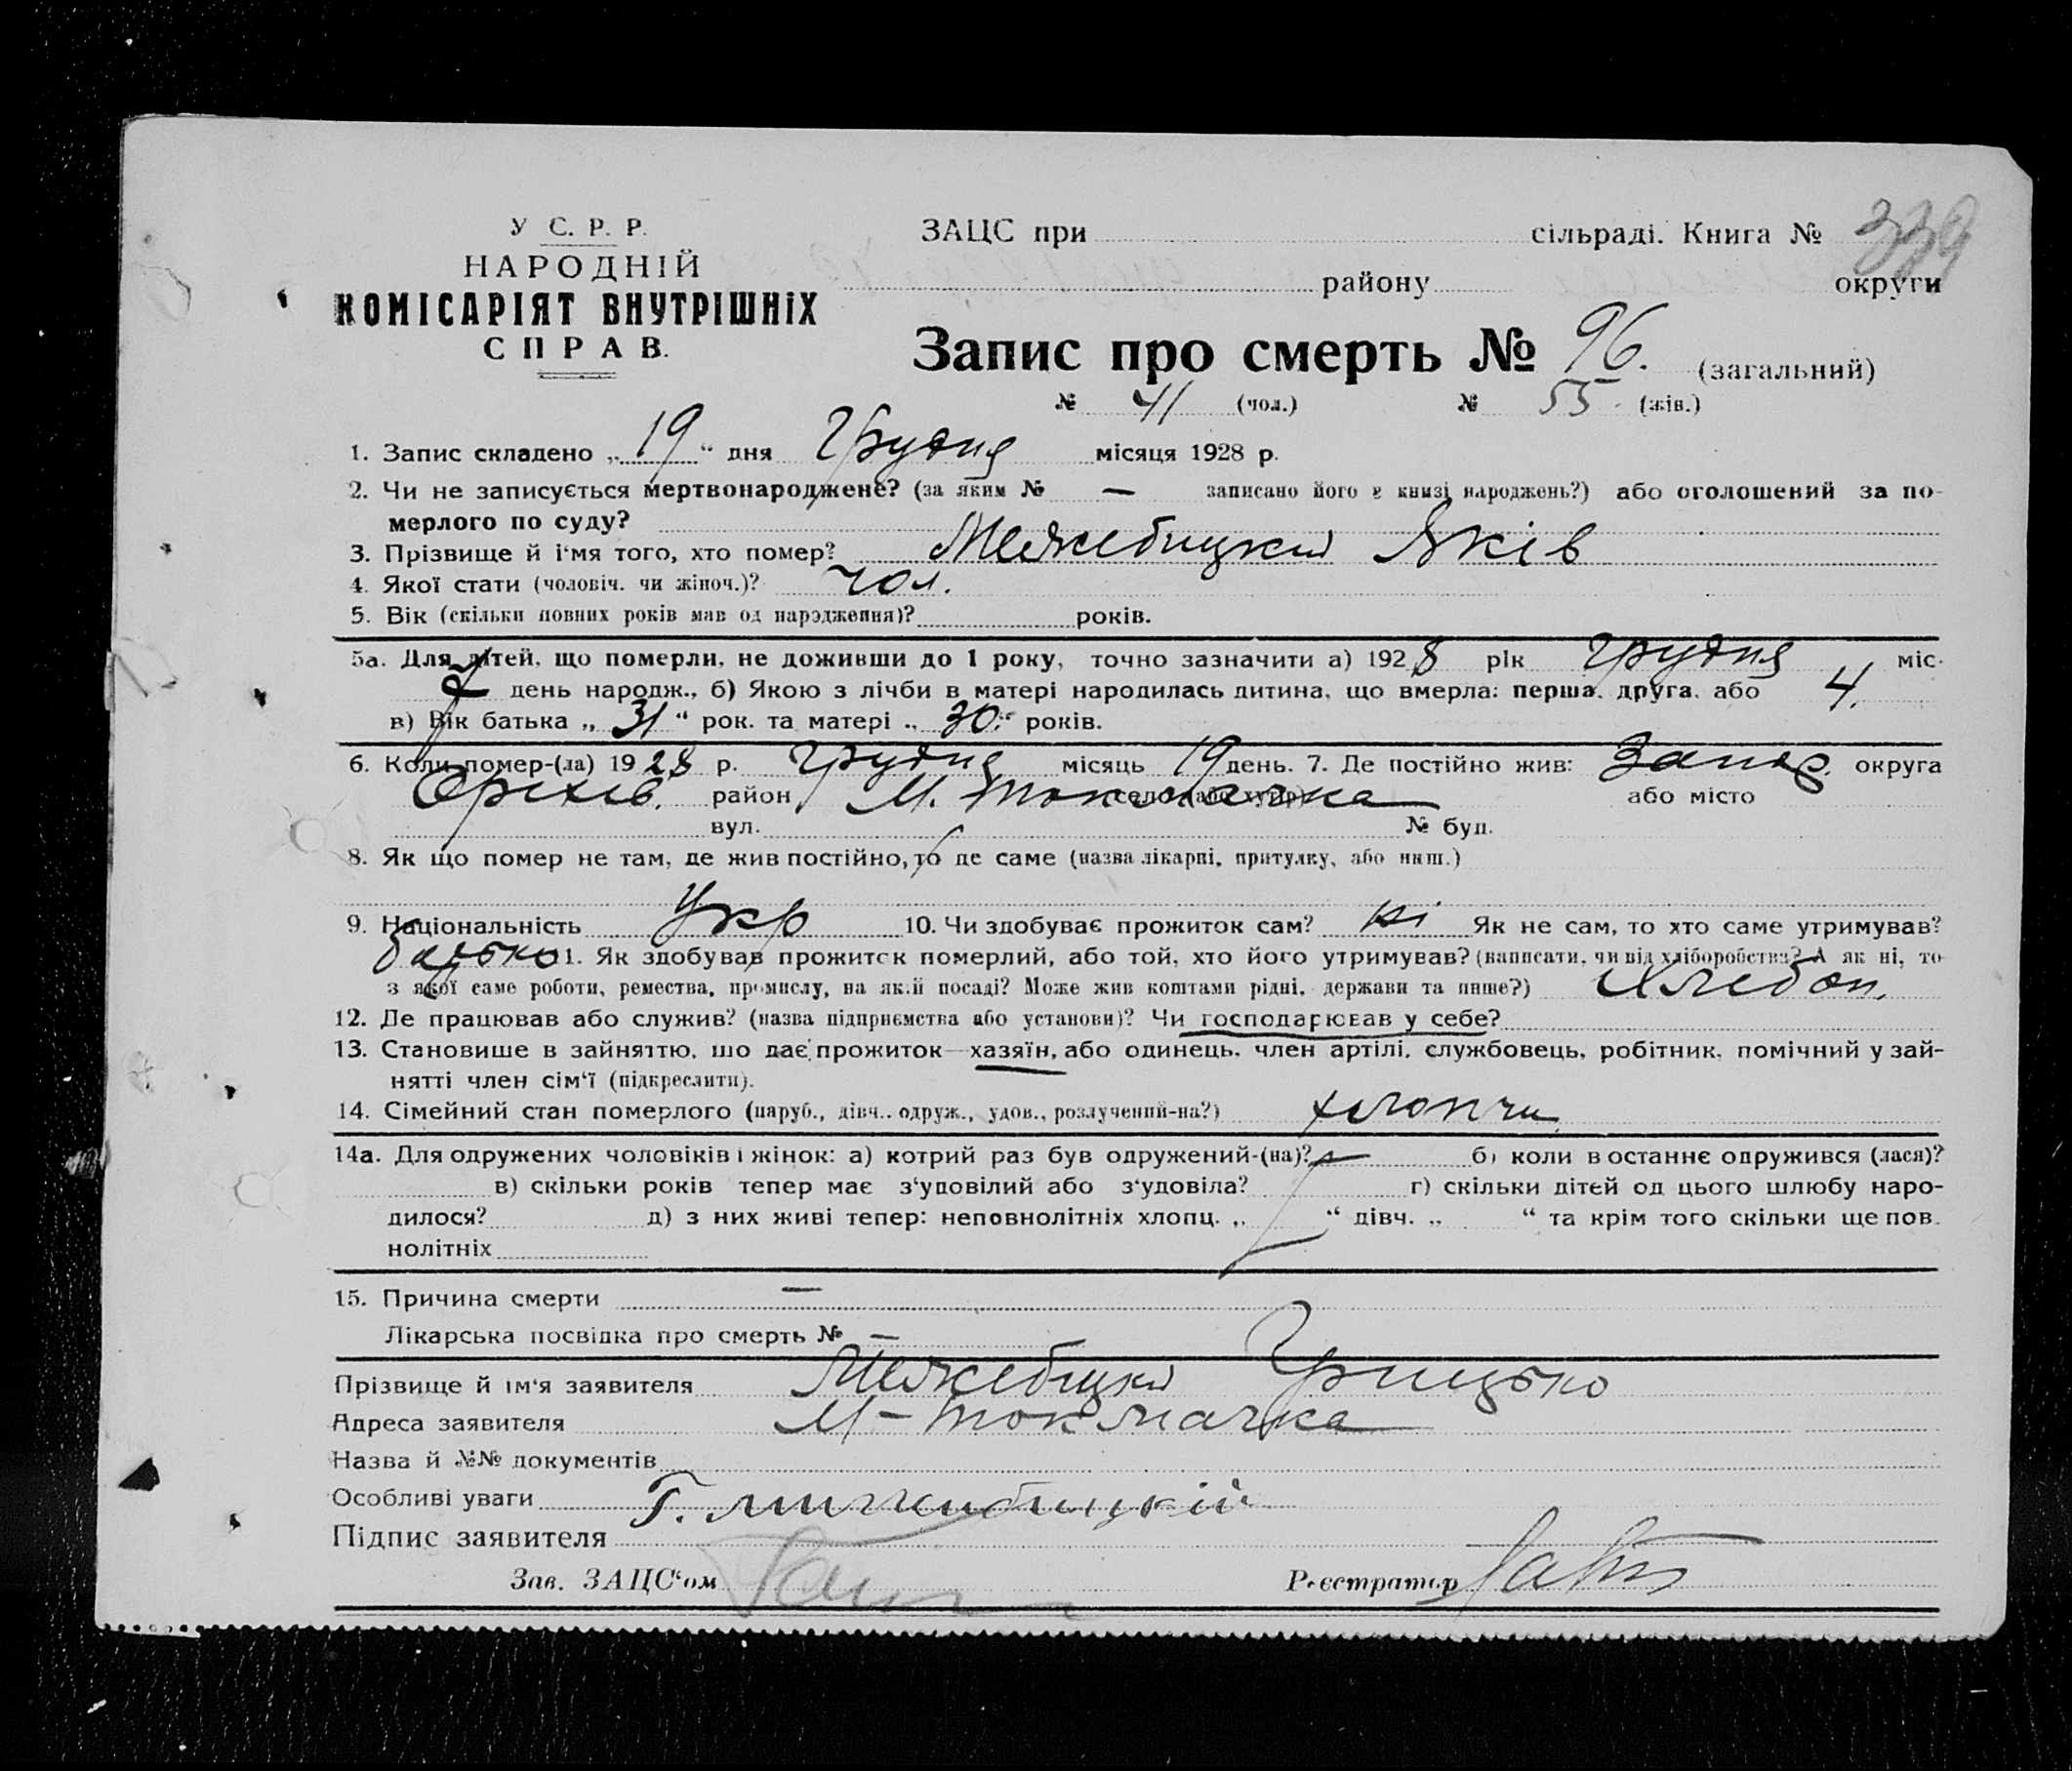 У С. Р. Р.
НАРОДНІЙ
КОМІСАРІЯТ ВНУТРІШНІХ
СПРАВ.
ЗАЦС при сільраді. Книга № 339
району округи
Запис про смерть № 96. (загальний)
№ 41 (чол.) № 55 (жін.)
1. Запис складено „19“ дня Грудня місяця 1928 р.
2. Чи не записується мертвонароджене? (за яким № — записано його в книзі народжень?) або оголошений за по-
мерлого по суду?
3. Прізвище й і‘мя того, хто помер? Межебицкий Яків
4. Якої стати (чоловіч. чи жіноч.)? чол.
5. Вік (скільки повних років мав од народження)? років.
5а. Для дітей, що померли, не доживши до 1 року, точно зазначити а) 1928 рік грудня міс.
день народж., б) Якою з лічби в матері народилась дитина, що вмерла: перша, друга, або 4.
в) Вік батька „31“ рок. та матері „30“ років.
6. Коли помер-(ла) 1928 р. грудня місяць 19 день. 7. Де постійно жив: Запор. округа
Оріхів. район М. Токмачка село (або хутір) або місто
вул. № буд.
8. Як що помер не там, де жив постійно, то де саме (назва лікарні, притулку, або инш.)
9. Національність Укр 10. Чи здобуває прожиток сам? ні Як не сам, то хто саме утримував?
батько 11. Як здобував прожиток померлий, або той, хто його утримував? (написати, чи від хліборобства? А як ні, то
з якої саме роботи, ремества, промислу, на якій посаді? Може жив коштами рідні, держави та инше?) Хлебоп.
12. Де працював або служив? (назва підприємства або установи)? Чи господарював у себе?
13. Становище в зайняттю, що дає прожиток—хазяїн, або одинець, член артілі, службовець, робітник, помічний у зай-
нятті член сім‘ї (підкреслити).
14. Сімейний стан померлого (паруб., дівч., одруж., удов., розлучений-на?) хлопчи
14а. Для одружених чоловіків і жінок: а) котрий раз був одружений-(на)? — б) коли востаннє одружився (лася)?
в) скільки років тепер має з‘уповілий або з‘удовіла? г) скільки дітей од цього шлюбу наро-
дилося? д) з них живі тепер: неповнолітніх хлопц. „ “ дівч. „ “ та крім того скільки ще пов.
нолітніх
15. Причина смерти —
Лікарська посвідка про смерть № —
Прізвище й ім‘я заявителя Межебицкий Грицько
Адреса заявителя М-Токмачка
Назва й №№ документів
Особливі уваги Г. мижибицкій
Підпис заявителя
Зав. ЗАЦС‘ом Реєстратор